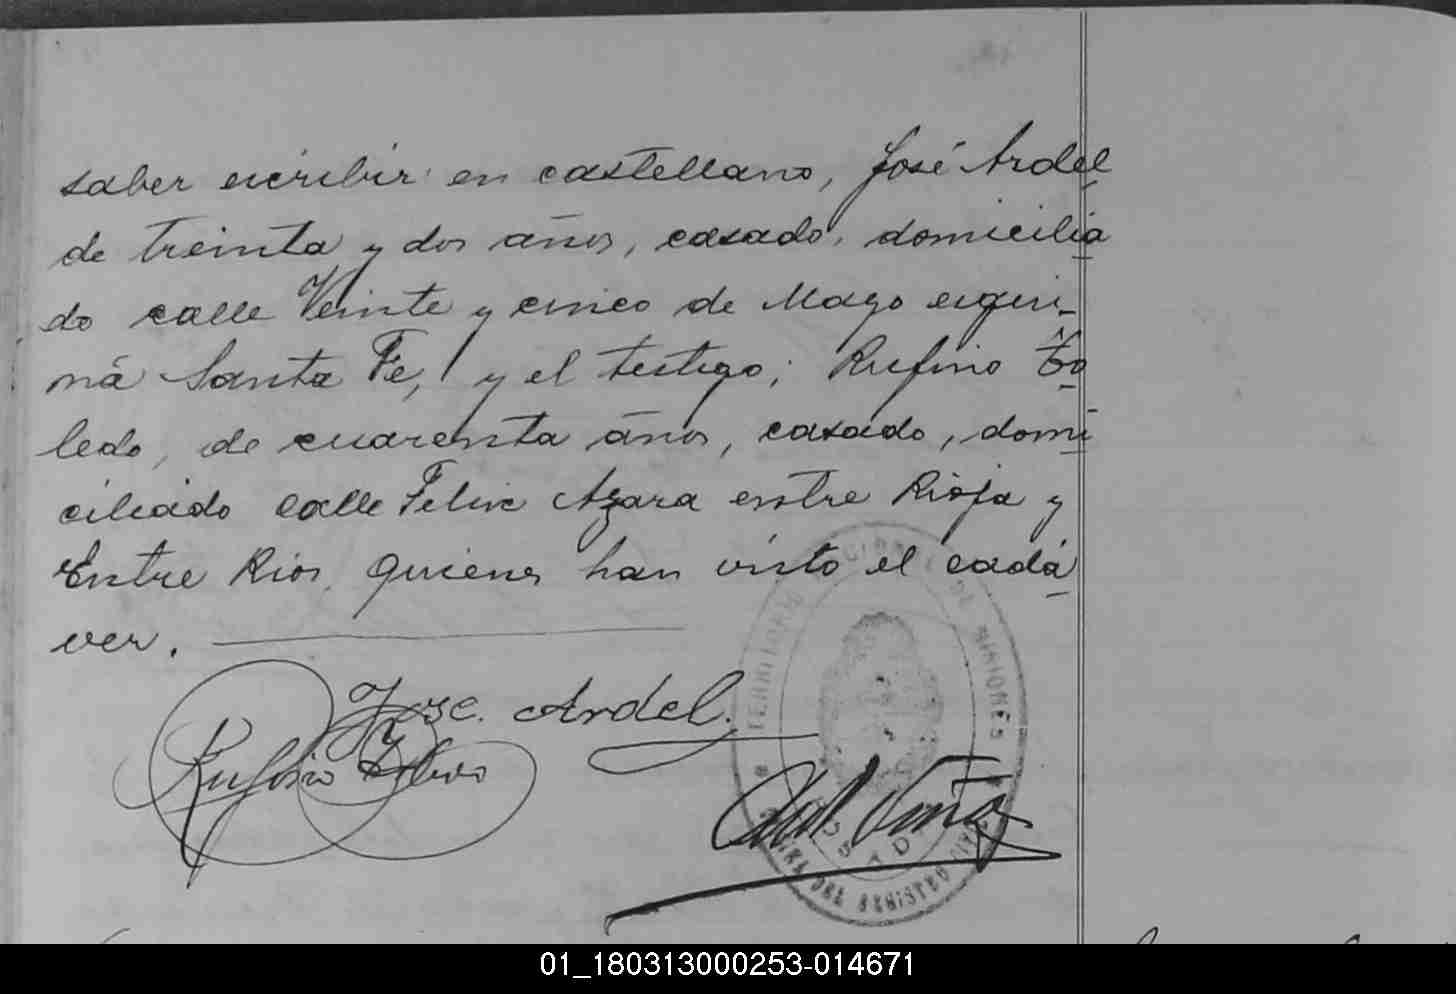 saber escribir en castellano, José Ardel
de treinta y dos años, casado, domicilia
do calle Veinte y cinco de Mayo esqui-
ná Santa Fe, y el testigo; Rufino To
ledo, de cuarenta años, casado, domi
ciliado calle Felix Azara entre Rioja y
Entre Rios, quienes han visto el cadá
ver.
Jose Ardel.
Rufino Toledo
TERRITORIO NACIONAL DE MISIONES
DEL REGISTRO CIVIL
01_180313000253-014671